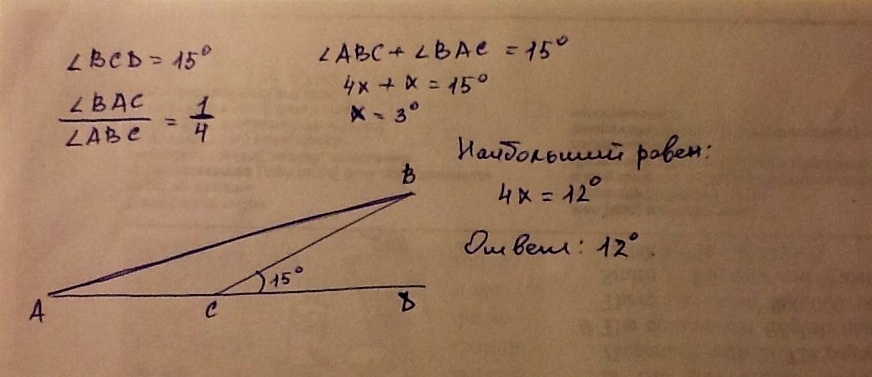 ∠BCD = 15°
∠BAC / ∠ABC = 1/4
∠ABC + ∠BAC = 15°
4x + x = 15°
x = 3°
Наибольший равен:
4x = 12°
Ответ: 12°.
B
15°
A
C
D